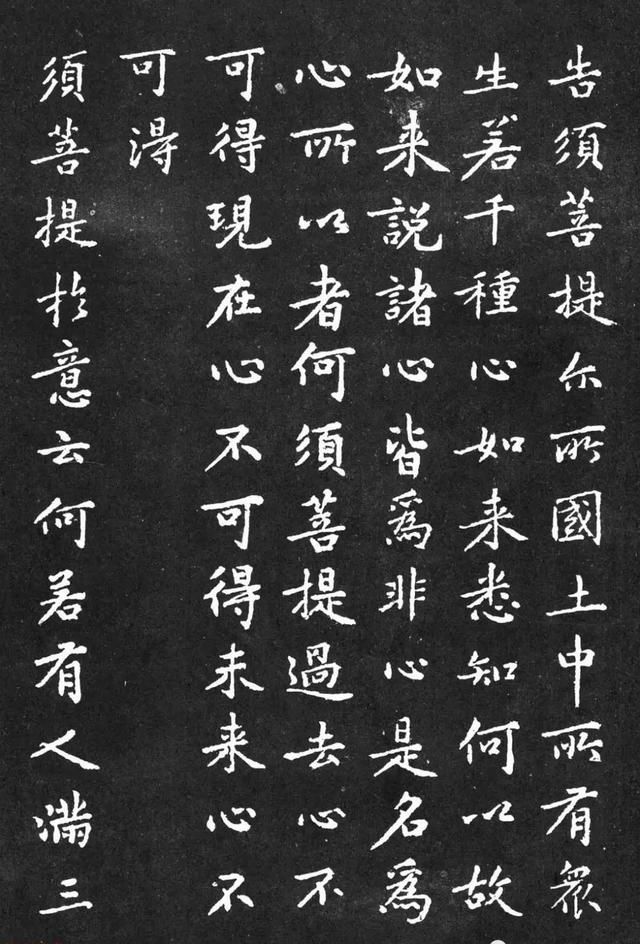 告須菩提尒所國土中所有衆
生若干種心如来悉知何以故
如来說諸心皆爲非心是名爲
心所以者何須菩提過去心不
可得現在心不可得未来心不
可得
須菩提於意云何若有人滿三